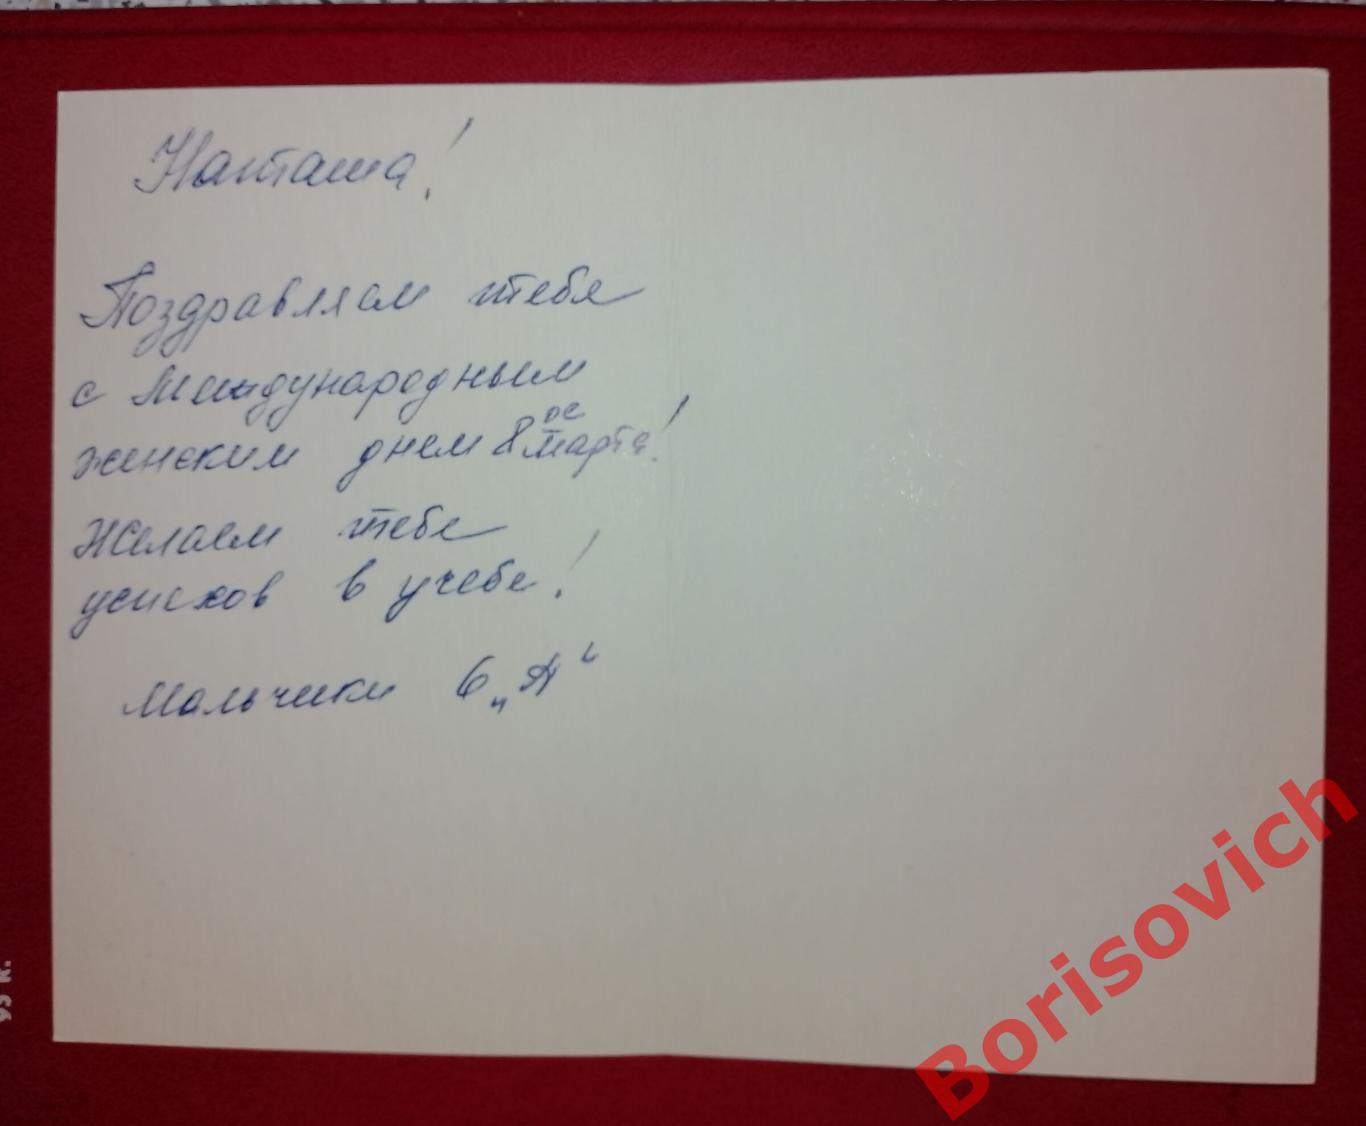 Наташа!
Поздравляем тебя
с Международным
женским днем 8 ое марта!
Желаем тебе
успехов в учебе!
Мальчики 6 „А“
95 к.
Borisovich